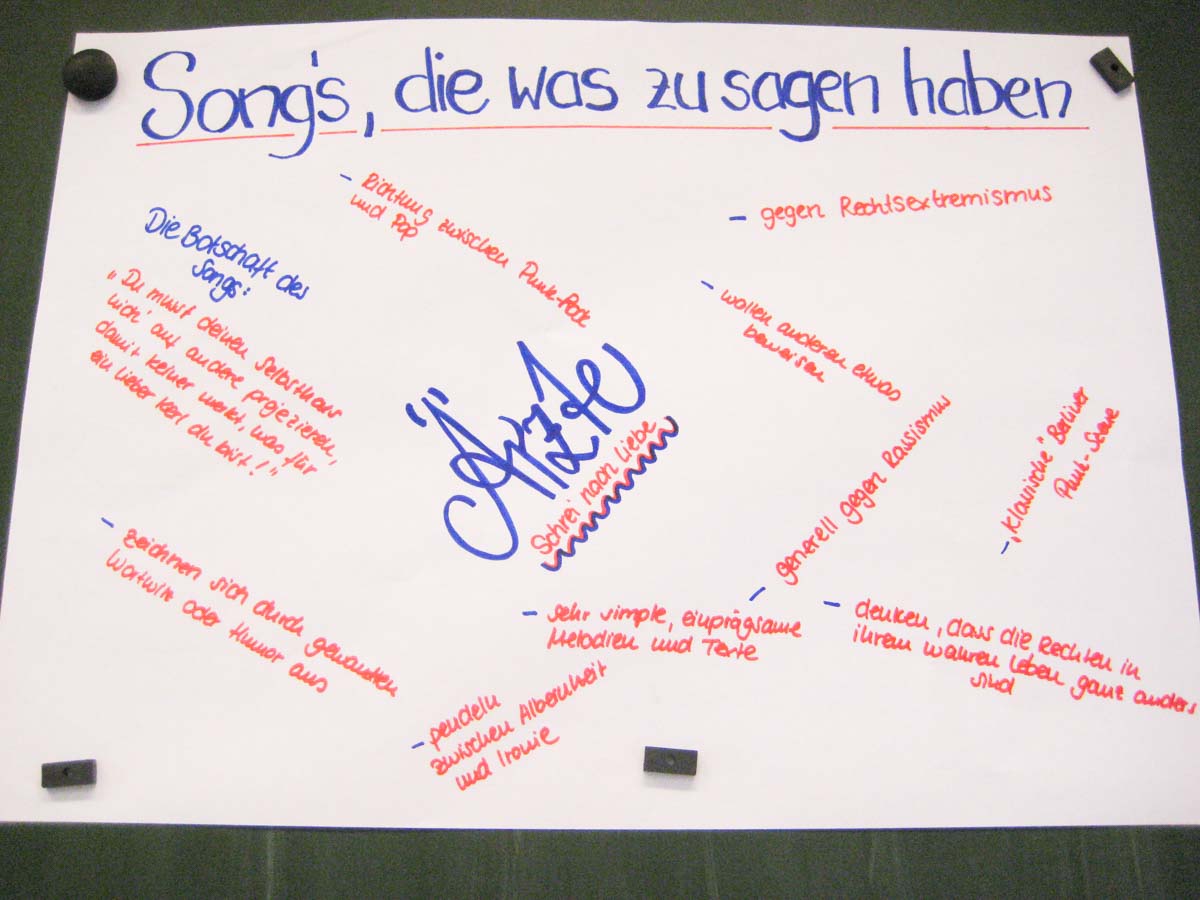 Song's, die was zu sagen haben
- Richtung zwischen Punk-Rock
und Pop
- gegen Rechtsextremismus
Die Botschaft des
Songs:
"Du musst deinen Selbsthass
nich' auf andere projezieren,
damit keiner merkt, was für
ein lieber Kerl du bist!"
- wollen anderen etwas
beweisen
Ärzte
Schrei nach Liebe
- generell gegen Rassismus
- „Klassische" Berliner
Punk-Scene
- zeichnen sich durch gewandten
Wortwitz oder Humor aus
- sehr simple, einprägsame
Melodien und Texte
- denken, dass die Rechten in
ihrem wahren Leben ganz anders
sind
- pendeln
zwischen Albernheit
und Ironie